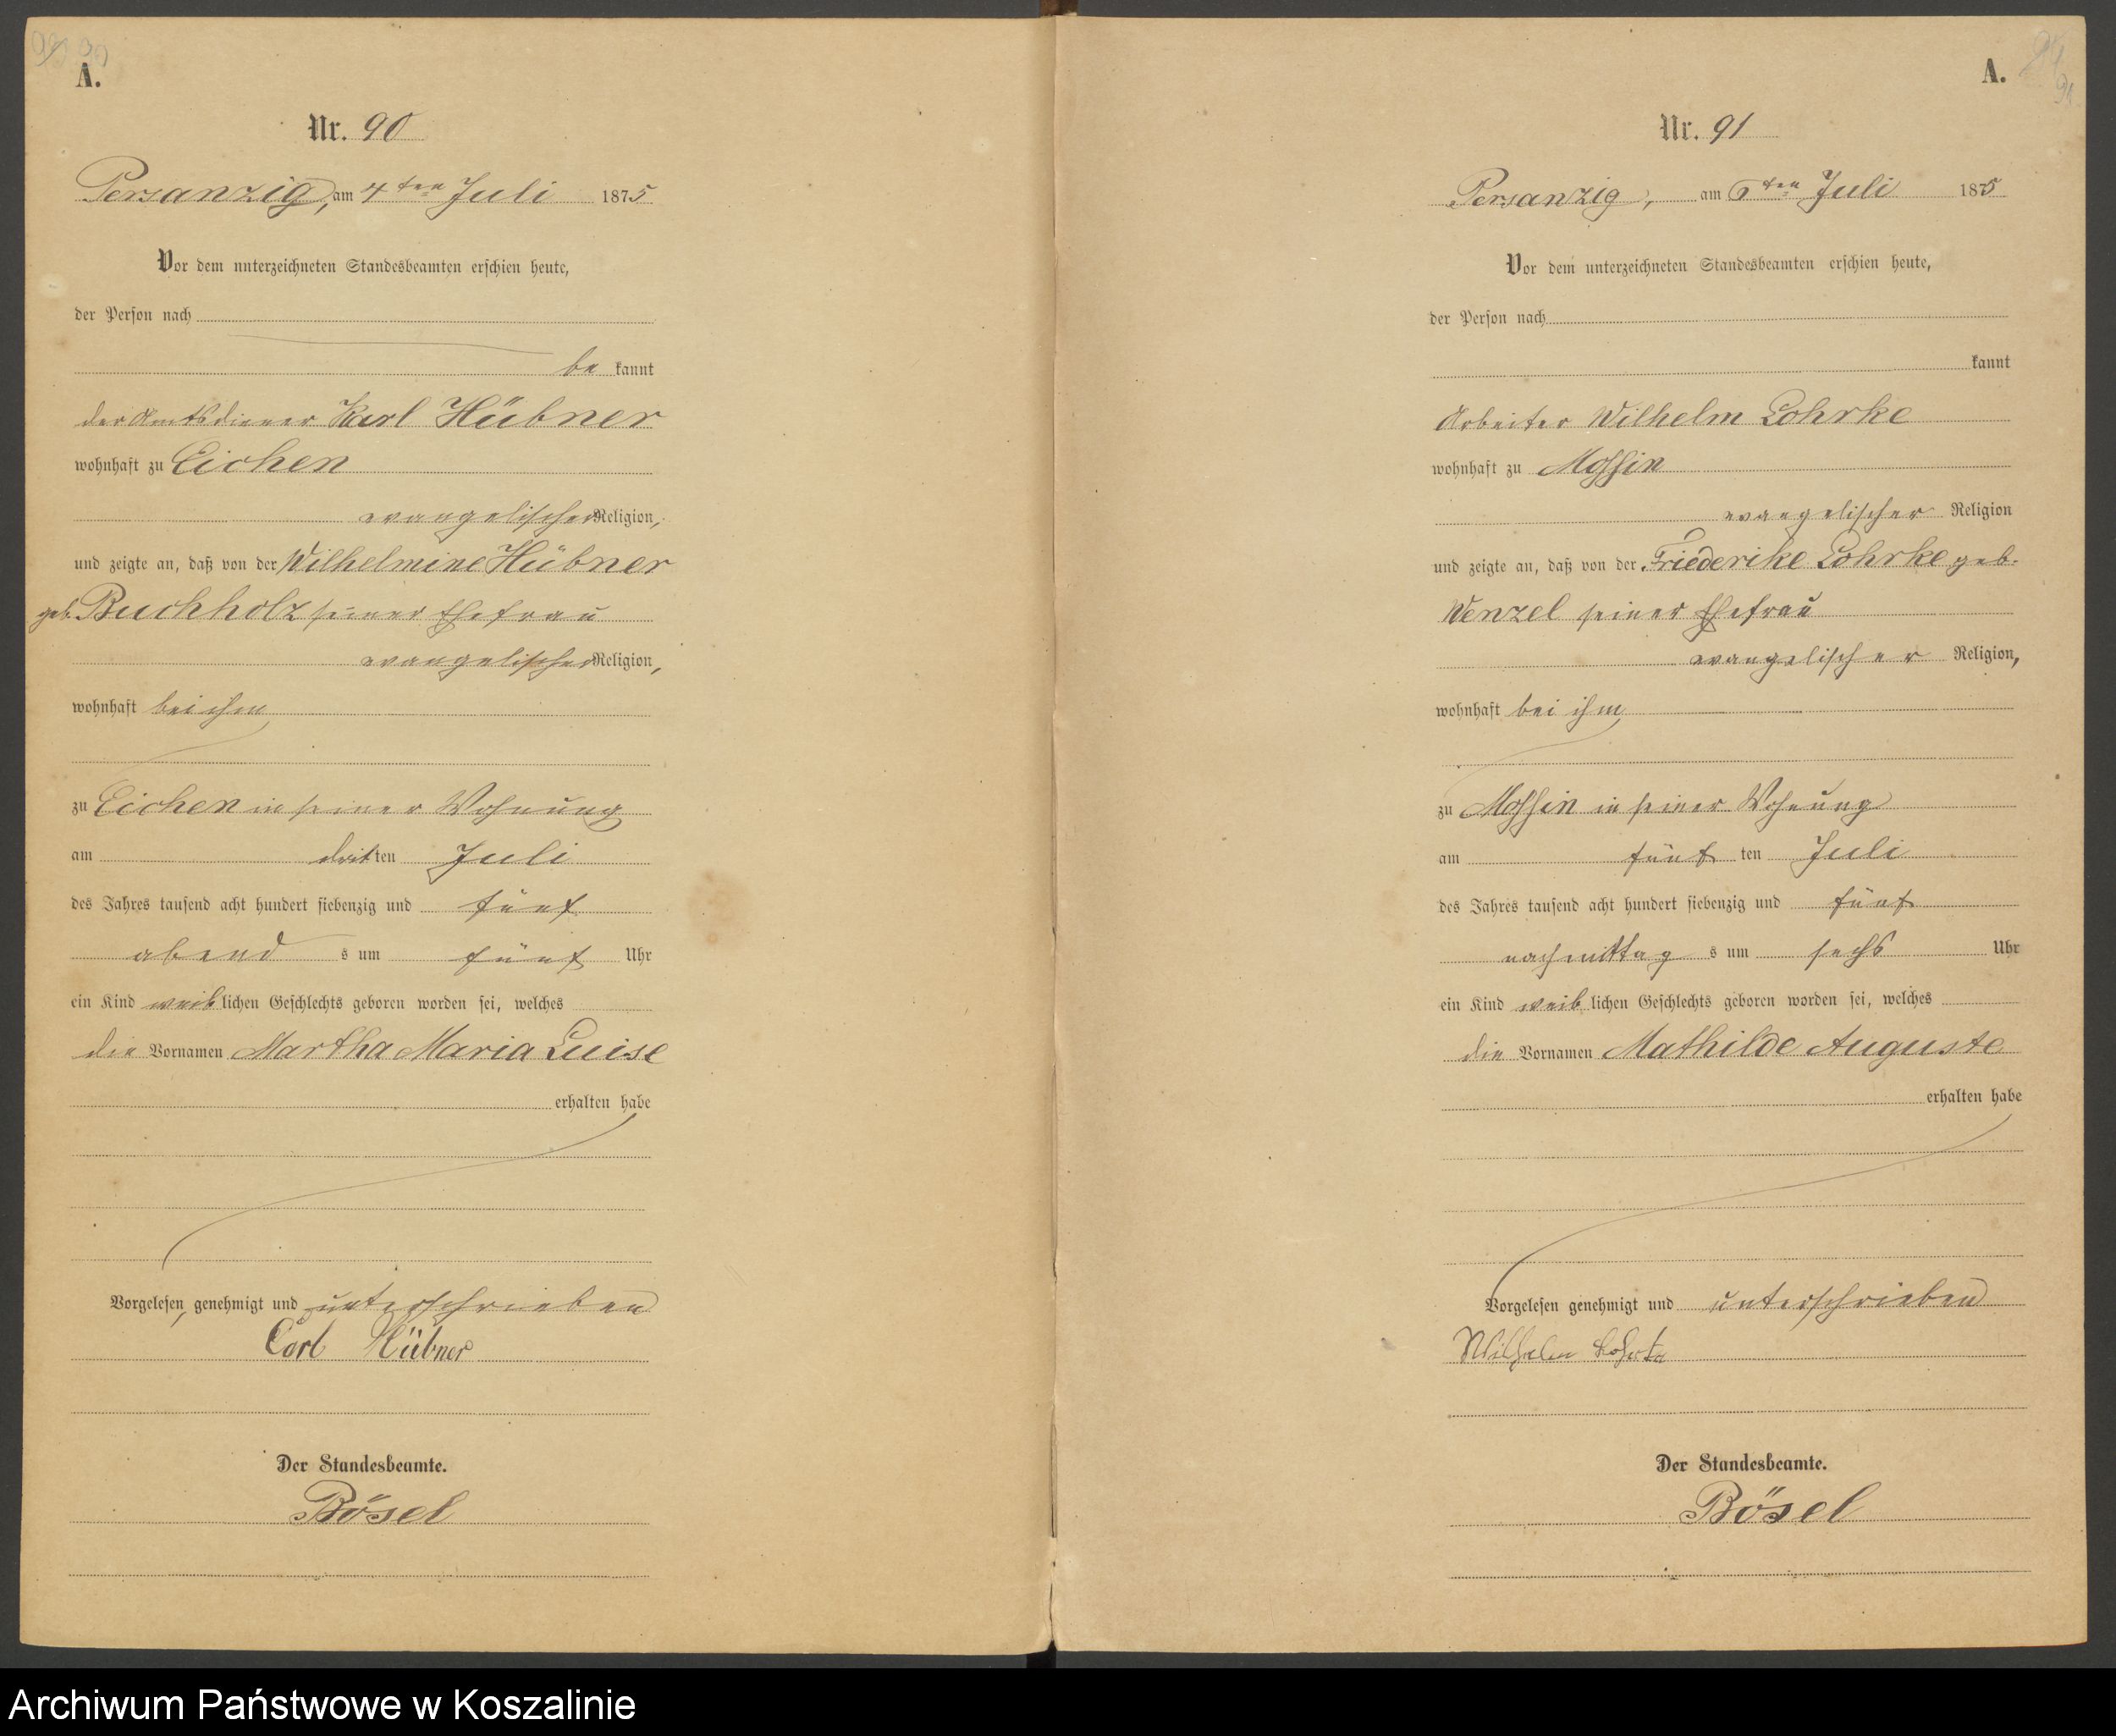 A.
Nr. 90
Persanzig, am 4ten Juli 1875
Vor dem unterzeichneten Standesbeamten erschien heute,
der Person nach
be kannt
der Amtsdiener Karl Hübner
wohnhaft zu Eichen
evangelischer Religion,
und zeigte an, daß von der Wilhelmine Hübner
geb. Buchholz seiner Ehefrau
evangelischer Religion,
wohnhaft bei ihm
zu Eichen in seiner Wohnung
am dritten Juli
des Jahres tausend acht hundert siebenzig und fünf
abend s um fünf Uhr
ein Kind weiblichen Geschlechts geboren worden sei, welches
die Vornamen Martha Maria Luise
erhalten habe
Vorgelesen, genehmigt und unterschrieben
Carl Hübner
Der Standesbeamte.
Bösel
A.
Nr. 91
Persanzig, am 6ten Juli 1875
Vor dem unterzeichneten Standesbeamten erschien heute,
der Person nach
kannt
Arbeiter Wilhelm Lohrke
wohnhaft zu Mossin
evangelischer Religion
und zeigte an, daß von der Friederike Lohrke geb.
Wenzel seiner Ehefrau
evangelischer Religion,
wohnhaft bei ihm
zu Mossin in seiner Wohnung
am fünf ten Juli
des Jahres tausend acht hundert siebenzig und fünf
nachmittag s um sechs Uhr
ein Kind weiblichen Geschlechts geboren worden sei, welches
die Vornamen Mathilde Auguste
erhalten habe
Vorgelesen genehmigt und unterschrieben
Wilhelm
Der Standesbeamte.
Bösel
Archiwum Państwowe w Koszalinie